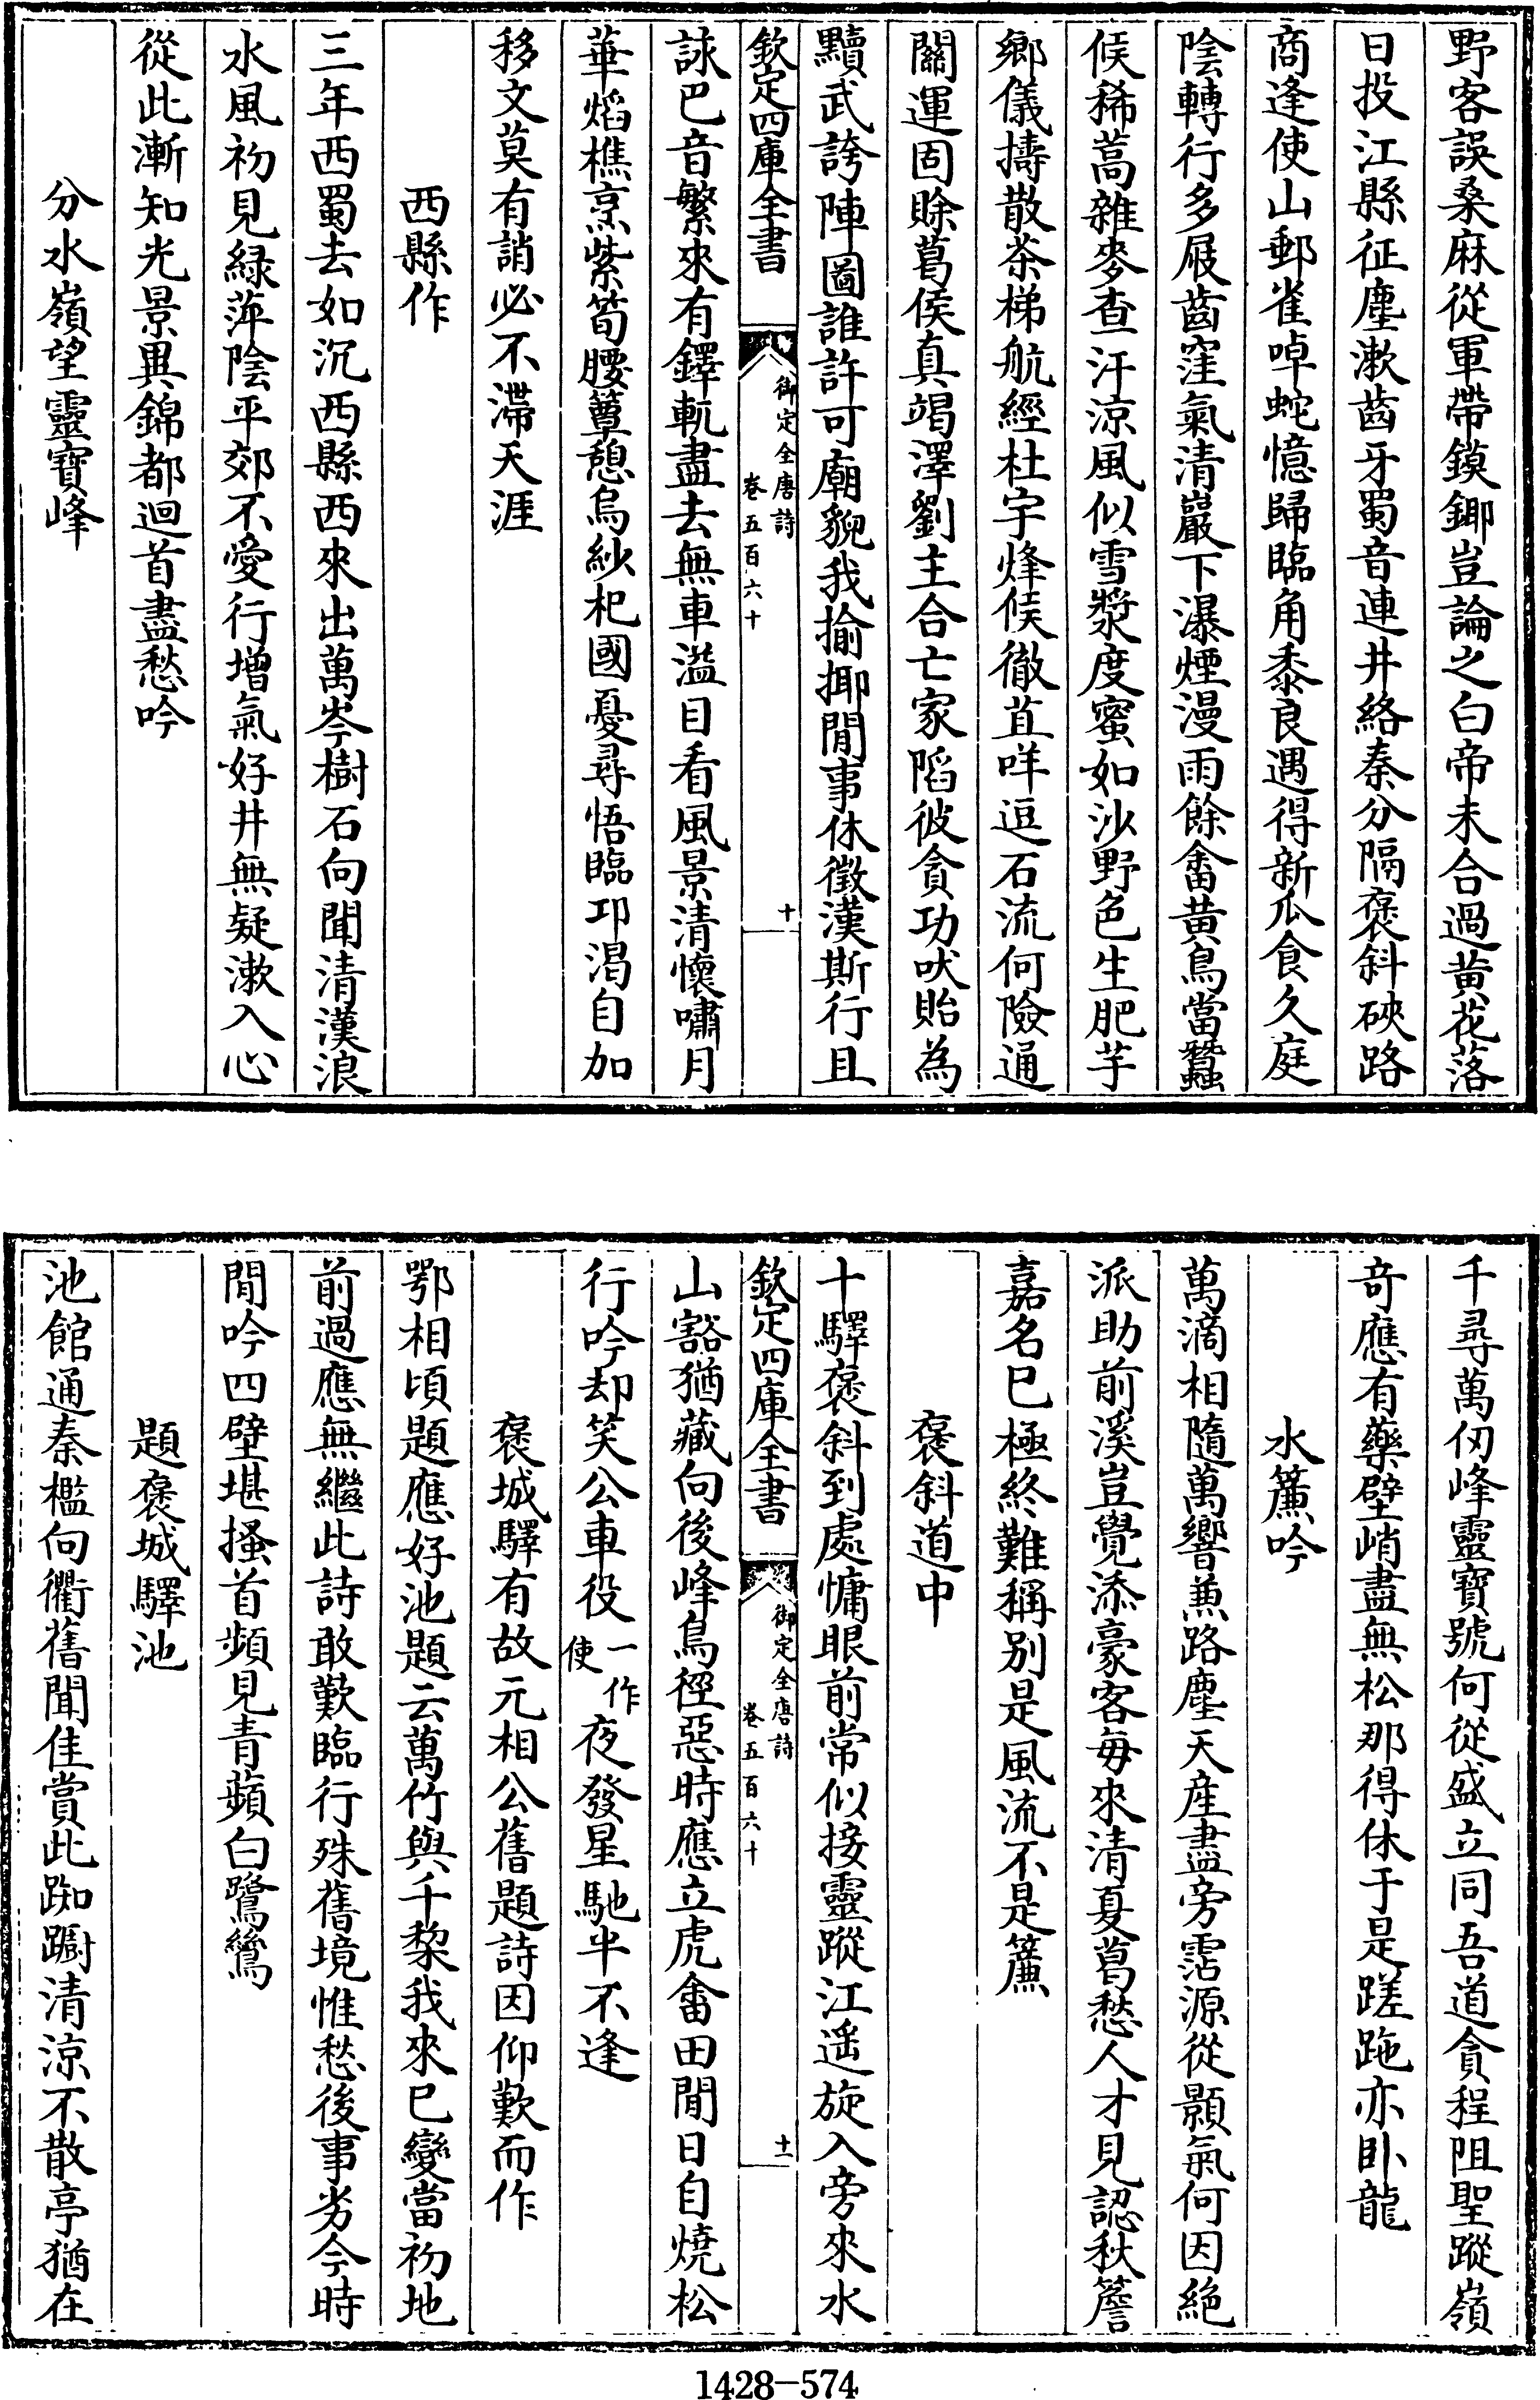 野客誤桑麻從軍帶鏌鎁豈論之白帝未合過黄花落
日投江縣征塵漱齒牙蜀音連井絡秦分隔褒斜硤路
商逢使山郵雀啅蛇憶歸臨角黍良遇得新瓜食久庭
陰轉行多屐齒窪氣清巖下瀑煙漫雨餘畬黄鳥當蠶
候稀蒿雜麥查汗涼風似雪漿度蜜如沙野色生肥芋
鄉儀擣散茶梯航經杜宇烽候徹苴咩逗石流何險通
關運固賒葛侯真竭澤劉主合亡家陷彼貪功吠貽為
黷武誇陣圖誰許可廟貌我揄揶閒事休徵漢斯行且
欽定四庫全書
御定全唐詩
卷五百六十
十
詠巴音繁來有鐸軏盡去無車溢目看風景清懷嘯月
華熖樵烹紫筍腰簟憩烏紗杞國憂尋悟臨邛渴自加
移文莫有誚必不滯天涯
西縣作
三年西蜀去如沉西縣西來出萬岑樹石向聞清漢浪
水風初見緑萍陰平郊不愛行增氣好井無疑漱入心
從此漸知光景異錦都迴首盡愁吟
分水嶺望靈寶峰
千尋萬仞峰靈寶號何從盛立同吾道貪程阻聖蹤嶺
奇應有藥壁峭盡無松那得休于是蹉跎亦卧龍
水簾吟
萬滴相隨萬響兼路塵天産盡旁霑源從顥氣何因絶
派助前溪豈覺添豪客每來清夏葛愁人才見認秋簷
嘉名已極終難稱别是風流不是簾
褒斜道中
十驛褒斜到處慵眼前常似接靈蹤江遥旋入旁來水
欽定四庫全書
御定全唐詩
卷五百六十
十一
山豁猶藏向後峰鳥徑惡時應立虎畬田閒日自燒松
行吟却笑公車役一作使夜發星馳半不逢
褒城驛有故元相公舊題詩因仰歎而作
鄂相頃題應好池題云萬竹與千棃我來已變當初地
前過應無繼此詩敢歎臨行殊舊境惟愁後事劣今時
閒吟四壁堪搔首頻見青蘋白鷺鷥
題褒城驛池
池館通秦檻向衢舊聞佳賞此踟躕清涼不散亭猶在
1428-574